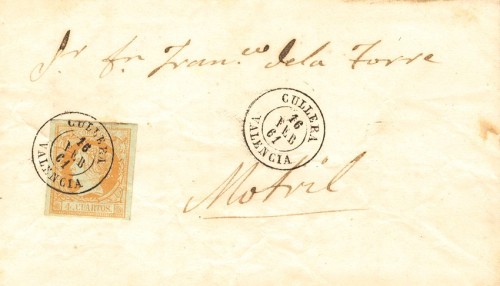 Sr Dn Franco. de la Torre
CULLERA
16
FEB
61
VALENCIA
CULLERA
16
FEB
61
VALENCIA
4 CUARTOS.
Motril